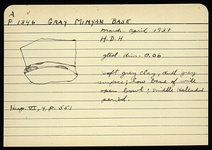 A
P 1346 GRAY MINYAN BASE
March-April 1937
H.D.H
gted dim. 0.06
soft gray clay, dull gray
surface; low band of wide
open bowl; middle Helladic
period.
Hesp. VI, 4, P. 551